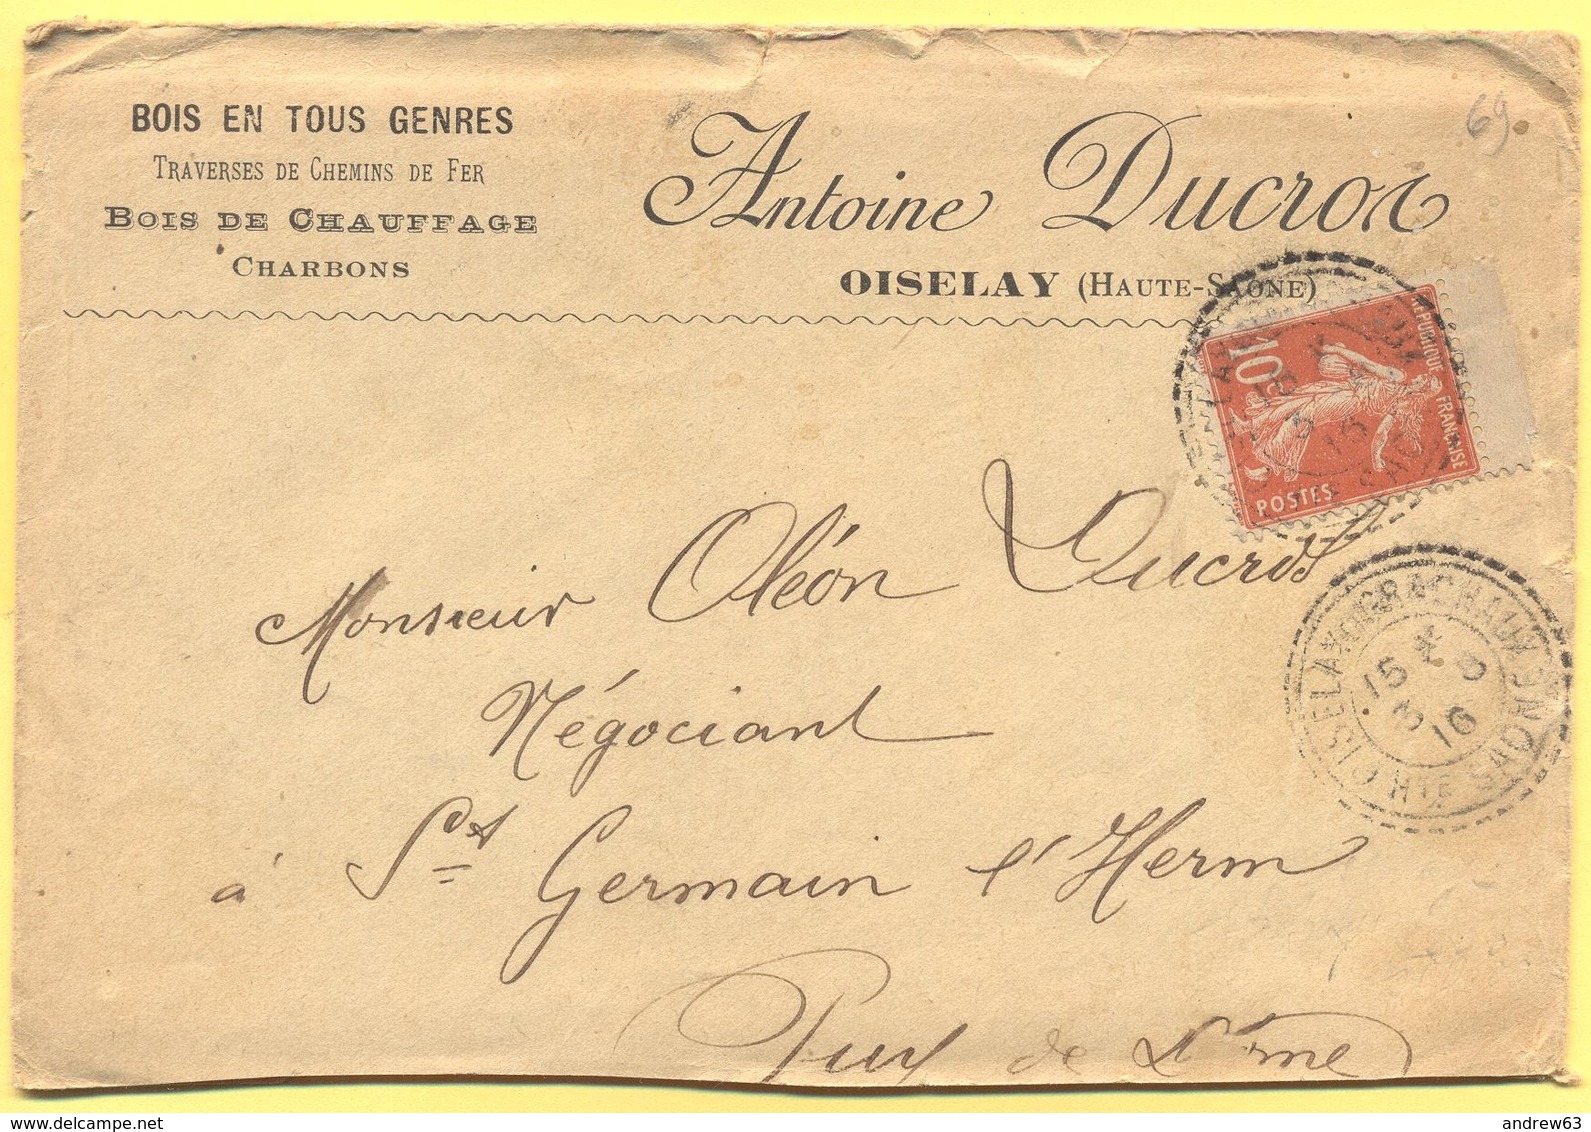 BOIS EN TOUS GENRES
TRAVERSES DE CHEMINS DE FER
BOIS DE CHAUFFAGE
CHARBONS
Antoine Ducrot
OISELAY (HAUTE-SAONE)
69
REPUBLIQUE FRANÇAISE
10c
POSTES
15 3 16
Monsieur Oléon Ducrot
Négociant
à St Germain l'Herm
Puy de Dôme
OISELAY-ET-GRACHAUX
15 * 5
3 16
HTE SAONE
www.delcampe.net
andrew63